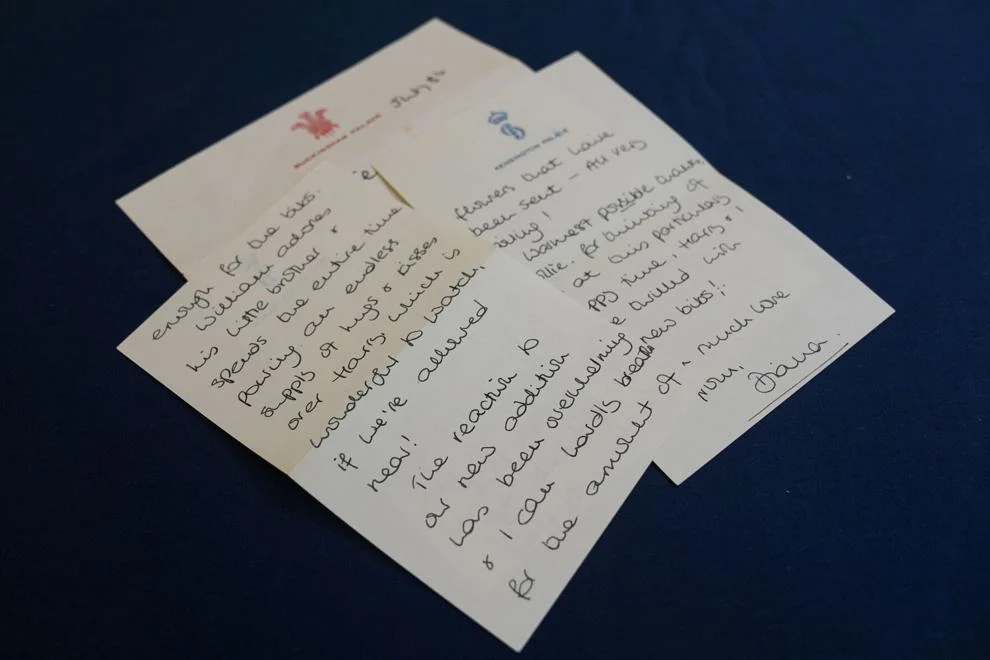 BUCKINGHAM PALACE
July 84
KENSINGTON PALACE
enough for the bibs.
William adores
his little brother &
spends the entire time
pouring an endless
supply of hugs & kisses
over Harry, which is
wonderful to watch,
if we're allowed
near!
The reaction to
our new addition
has been overwhelming
& I can hardly breathe
for the amount of
flowers that have
been sent - All very
warmest possible thanks,
for thinking of
at this particularly
time, Harry &
thrilled with
new bibs!
much love
from,
Diana.